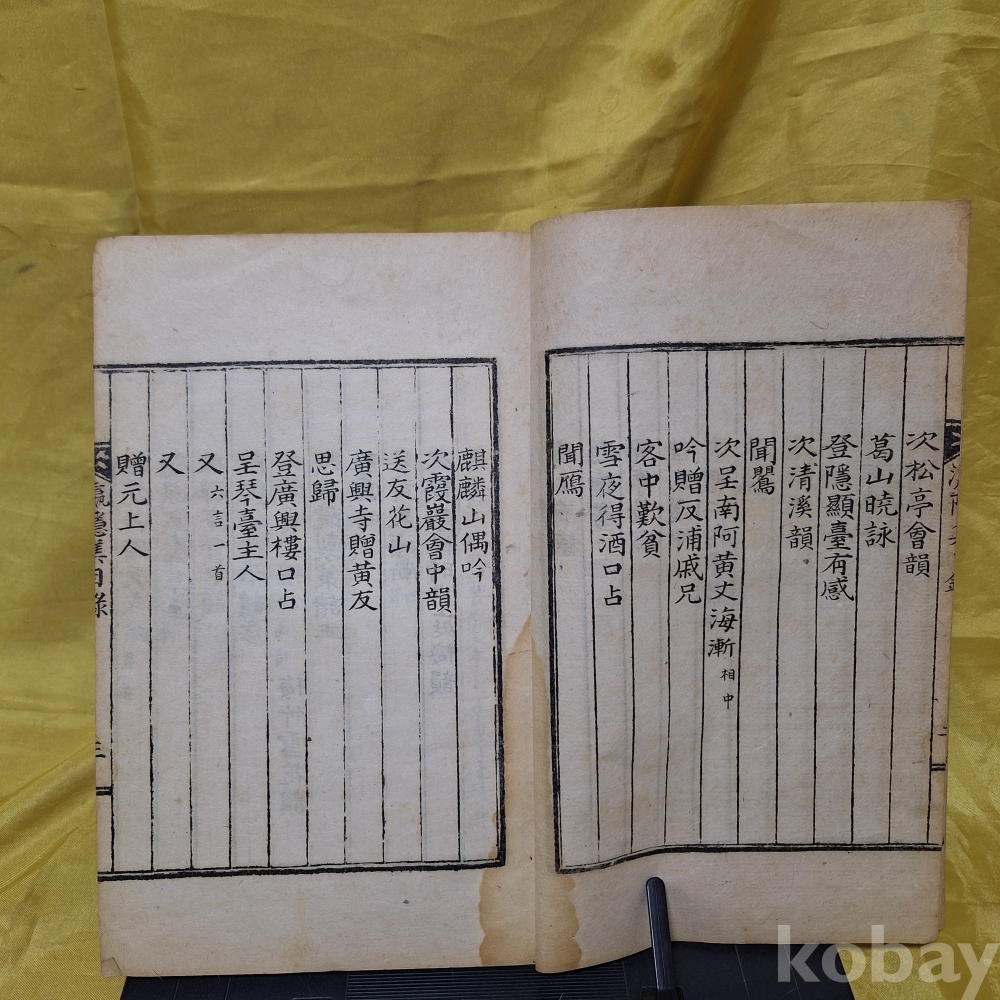 次松亭會韻
葛山曉詠
登隱顯臺有感
次清溪韻
聞鸎
次呈南阿黃丈海漸相中
吟贈反浦戚兄
客中歎貧
雪夜得酒口占
聞鴈
麒麟山偶吟
次霞巖會中韻
送友花山
廣興寺贈黃友
思歸
登廣興樓口占
呈琴臺主人
又六言一首
又
贈元上人
隱集目錄
三
kobay